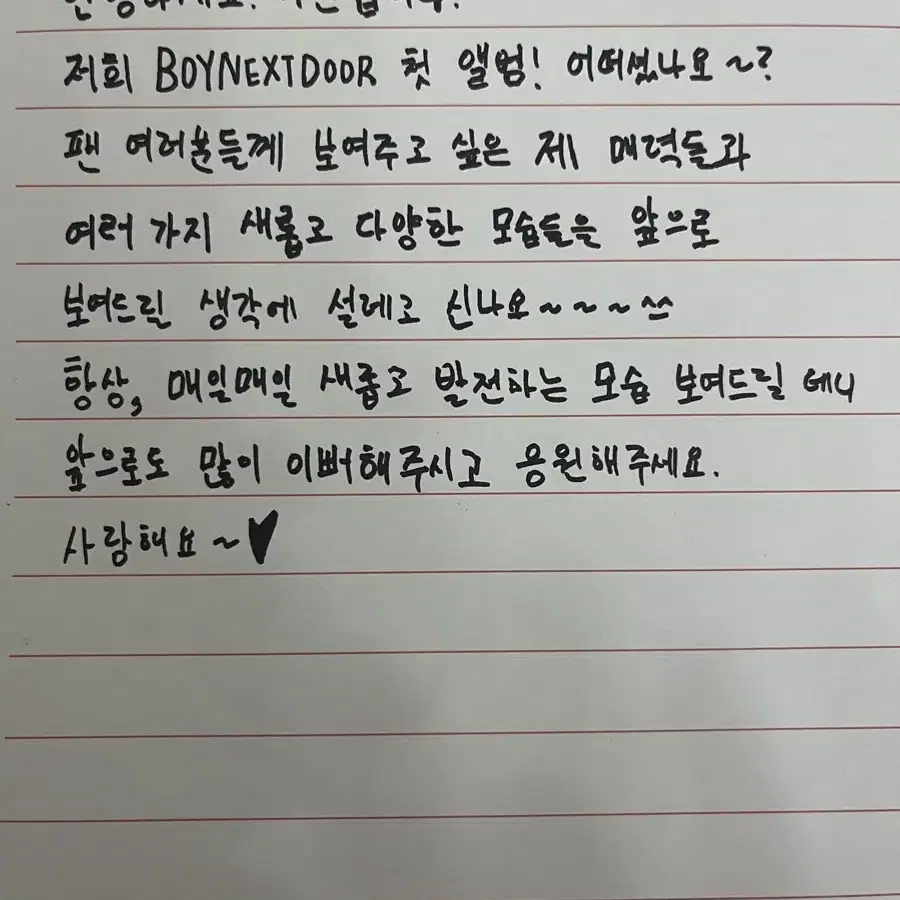 안녕하세요!
저희 BOYNEXTDOOR 첫 앨범! 어떠셨나요~?
팬 여러분들께 보여주고 싶은 제 매력들과
여러 가지 새롭고 다양한 모습들을 앞으로
보여드릴 생각에 설레고 신나요~~~^^
항상, 매일매일 새롭고 발전하는 모습 보여드릴 테니
앞으로도 많이 이뻐해주시고 응원해주세요.
사랑해요~♥